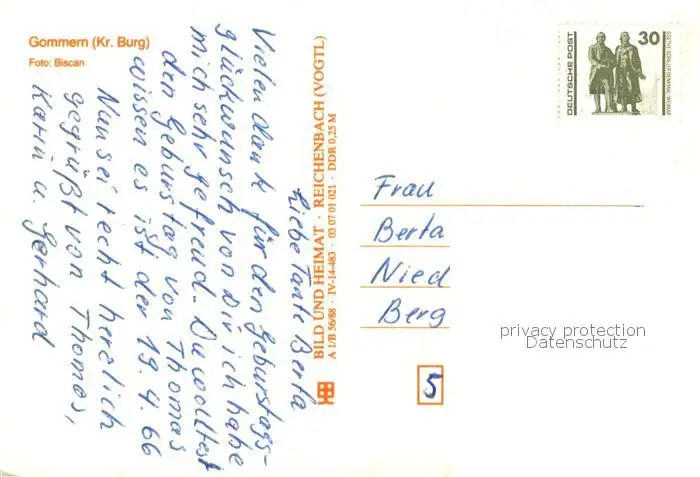 Gommern (Kr. Burg)
Foto: Biscan
Liebe Tante Berta
Vielen dank für den geburstags-
glückwunsch von Dir ich habe
mich sehr gefreud. Du wolltest
den geburstag von Thomas
wissen es ist der 19.4.66
Nun sei recht herzlich
gegrüßt von Thomas,
Karin u. Gerhard
BILD UND HEIMAT · REICHENBACH (VOGTL)
A 1/B 56/88 · IV-14-483 · 03 07 01 021 · DDR 0,25 M
DEUTSCHE POST
30
GOETHE-SCHILLER-DENKMAL · WEIMAR
Frau
Berta
Nied
Berg
5
privacy protection
Datenschutz